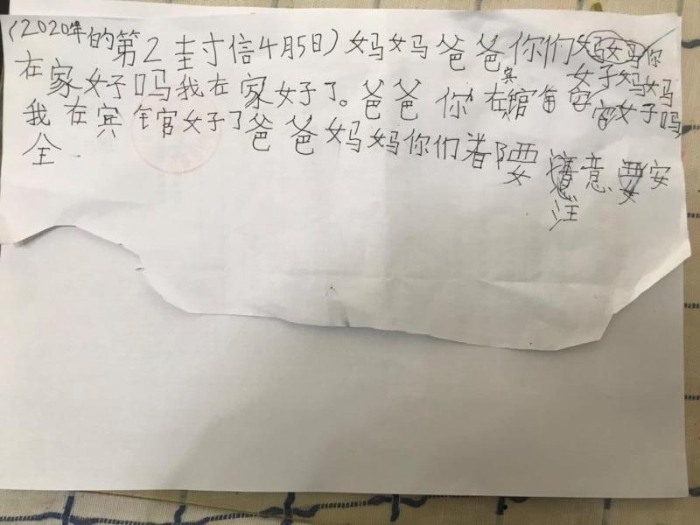 (2020年的第2封信4月5日)妈妈爸爸你们好妈妈你
在家好吗我在家好了。爸爸你在宾馆好吗
我在宾馆好了爸爸妈妈你们都要注意安
全